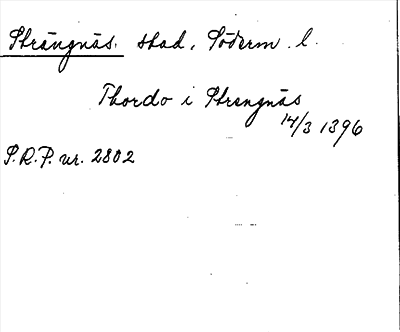 Strängnäs. stad, Söderm. l.
Thordo i Strengnäs
14/3 1396
S.R.P. nr. 2802